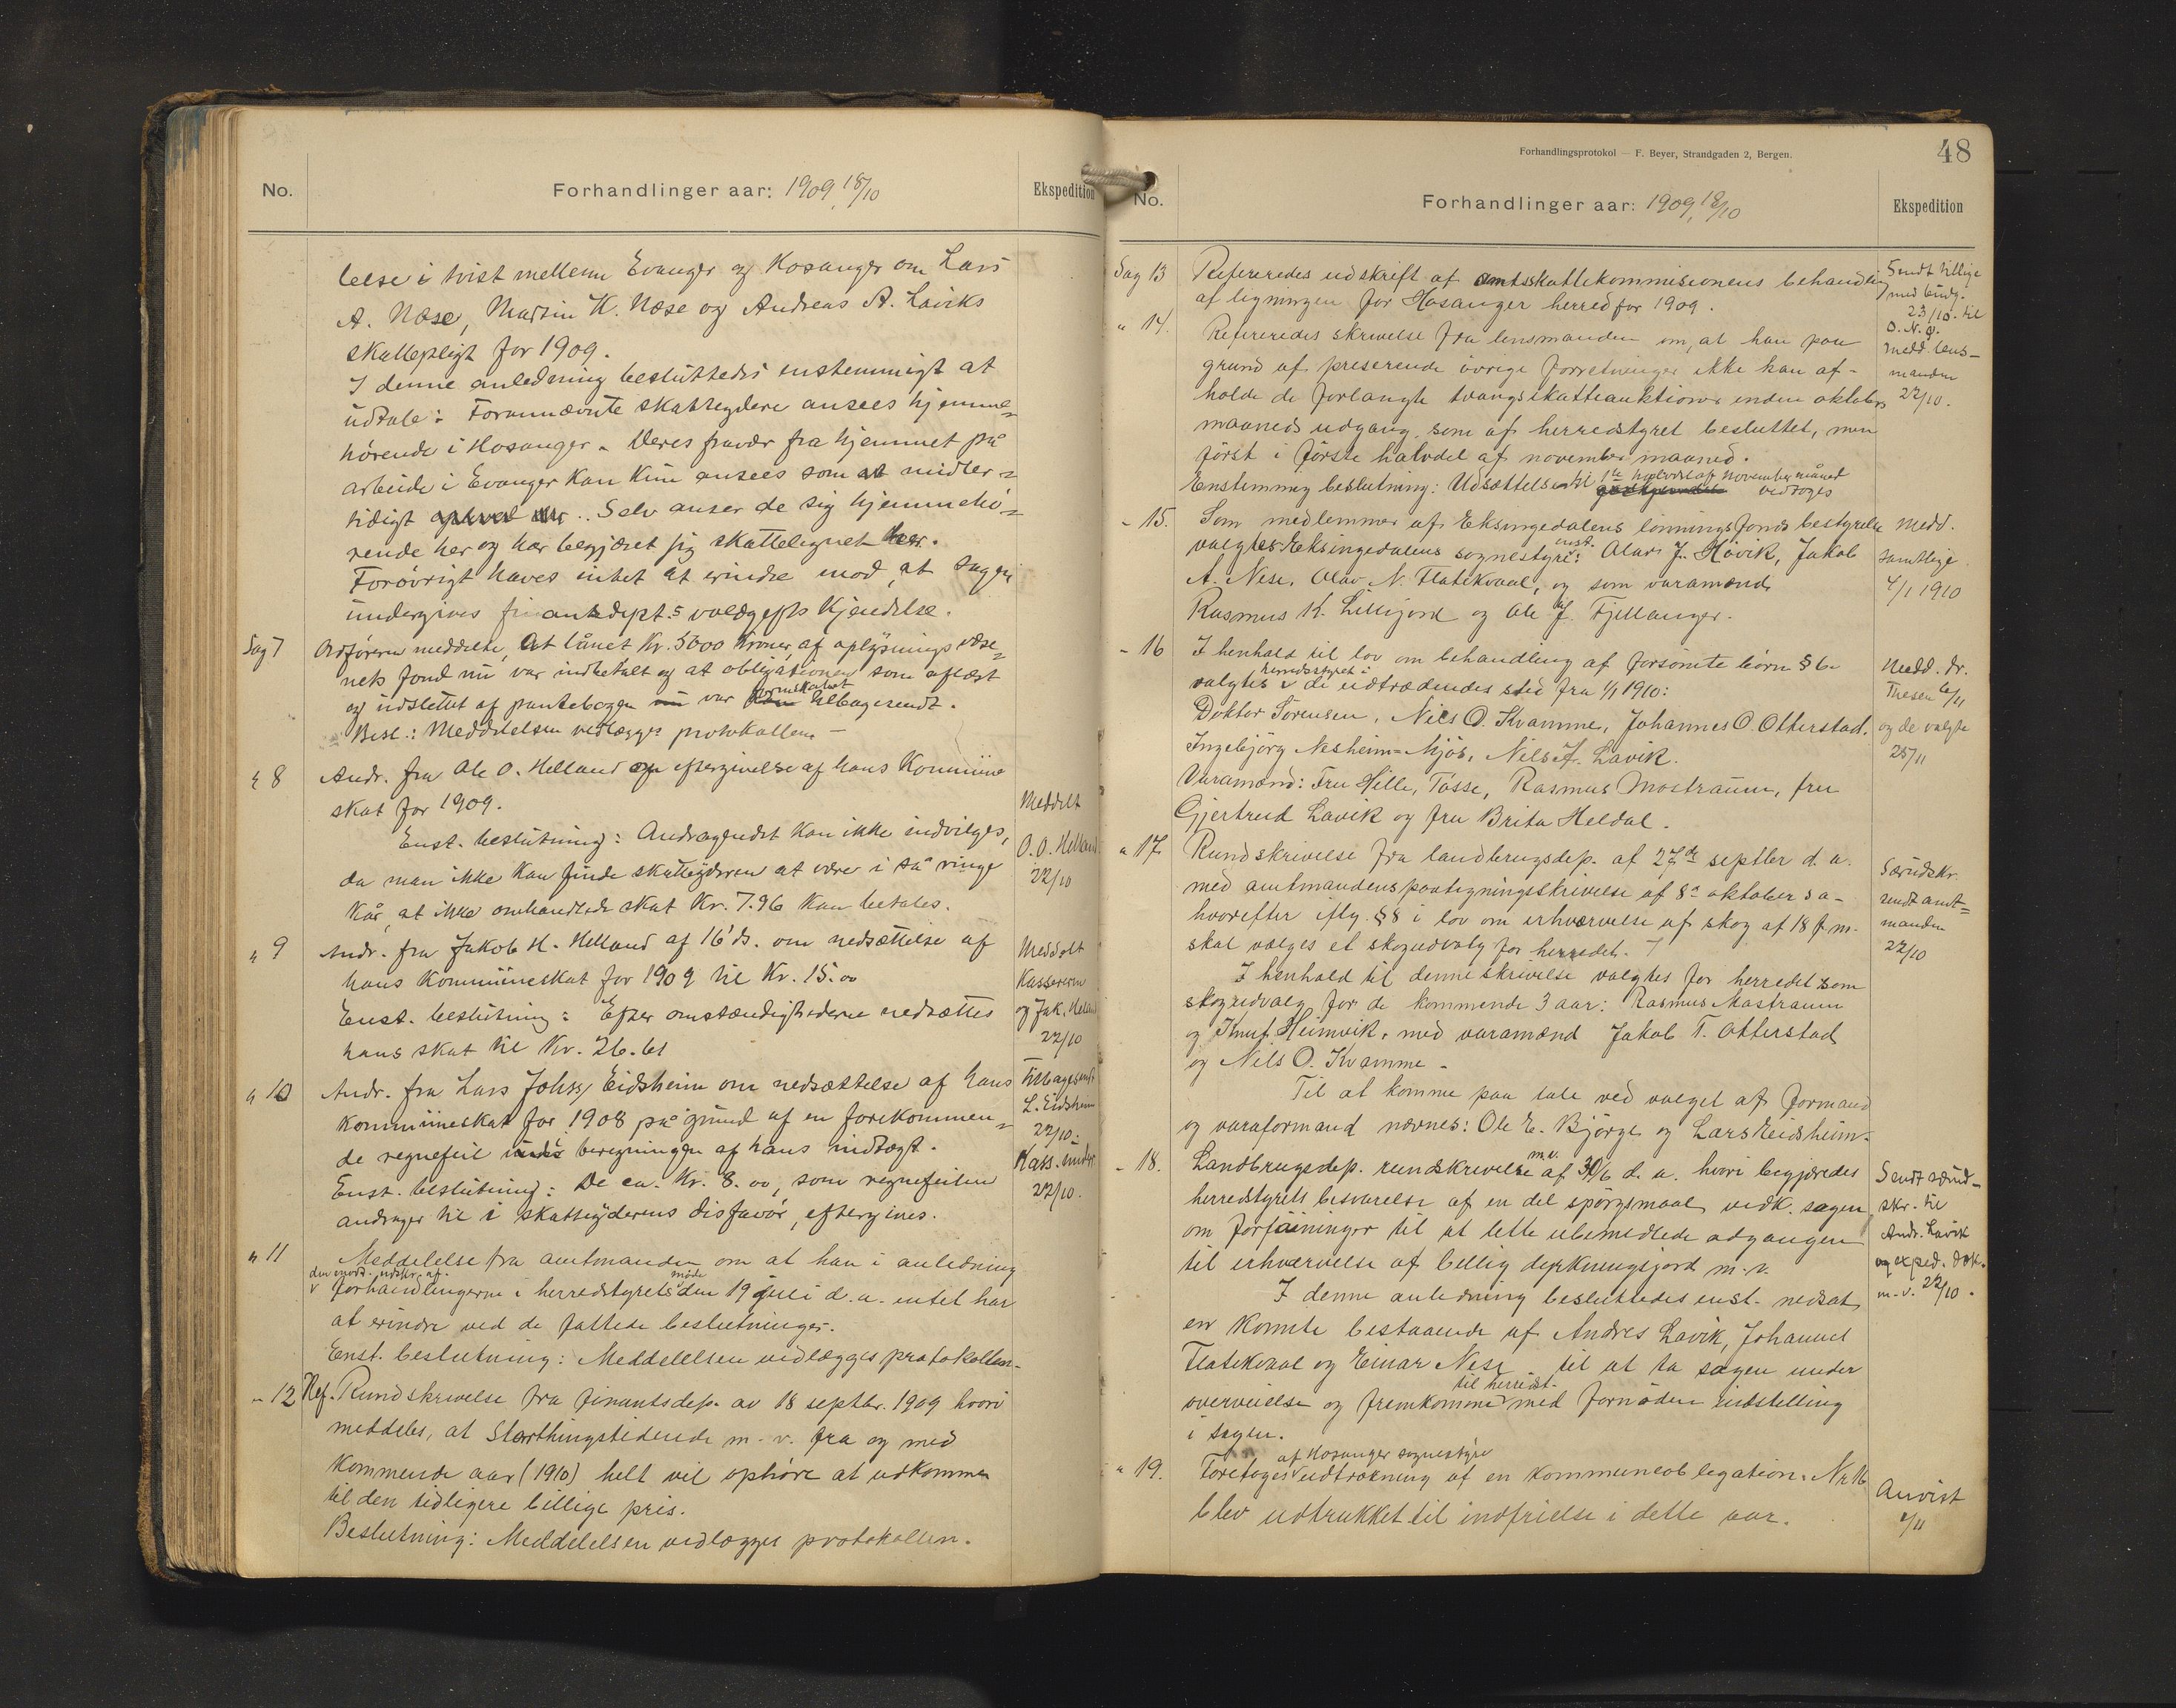 No.
Forhandlinger aar: 1909, 18/10
Ekspedition
lelse i tvist mellem Evanger og Hosanger om Lars
A. Næse, Martin K. Næse og Andreas A. Laviks
skattepligt for 1909.
I denne anledning besluttedes enstemmigt at
udtale: Forannævnte skatteydere ansees hjemme=
hörende i Hosanger. Deres fravær fra hjemmet på
arbeide i Evanger kan kun ansees som et midler=
tidigt ophold der.. Selv anser de sig hjemmehö=
rende her og har begjæret sig skattelignet her.
Forövrigt haves intet at erindre mod, at sagen
undergives finantsdept.s voldgifts kjendelse.
Sag 7 Ordföreren meddelte, at lånet Kr. 5000 kroner af oplysnings væse=
nets fond nu var indbetalt og at obligationen som aflæst
og udslettet af pantebogen nu var formskabet tilbagesendt.
Besl.: Meddelelsen vedlægges protokollen -
" 8 Andr. fra Ole O. Helland om eftergivelse af hans Kommune
skat for 1909.
Enst. beslutning: Andragendet kan ikke indvilges,
da man ikke kan finde skatteyderen at være i så ringe
kår, at ikke omhandlede skat Kr. 7.96 kan betales.
Meddelt
O.O. Helland
22/10
" 9 Andr. fra Jakob H. Helland af 16' ds. om nedsættelse af
hans kommuneskat for 1909 til Kr. 15.00
Enst. beslutning: Efter omstændighederne nedsættes
hans skat til Kr. 26.61
Meddelt
Kassereren
og Jak. Helland
22/10
" 10 Andr. fra Lars Johs. Eidsheim om nedsættelse af hans
kommuneskat for 1908 på grund af en forekommen=
de regnefeil under beregningen af hans indtægt.
Enst. beslutning: De ca. Kr. 8.00, som regnefeilen
andrager til i skatteyderens disfavör, eftergives.
Tilbagesendt
L. Eidsheim
22/10.
Kass. under
22/10.
" 11 Meddelelse fra amtmanden om at han i anledning
den modt. udskr. af
forhandlingerne i herredstyrets möde den 19 juli d.a. intet har
at erindre ved de fattede beslutninger.
Enst. beslutning: Meddelelsen vedlægges protokollen.
" 12 Ref. Rundskrivelse fra finantsdep. av 18 septbr. 1909 hvori
meddeles, at Storthingstidende m.v. fra og med
kommende aar (1910) helt vil ophöre at udkomme
til den tidligere billige pris.
Beslutning: Meddelelsen vedlægges protokollen.
Forhandlingsprotokol — F. Beyer, Strandgaden 2, Bergen.
48
No.
Forhandlinger aar: 1909, 18/10
Ekspedition
Sag 13 Refereredes udskrift af amtsskattekommisionens behandling
af ligningen for Hosanger herred for 1909.
Sendt tillige
med budg.
23/10. til
" 14. Refereredes skrivelse fra lensmanden om, at han paa
grund af preserende övrige forretninger ikke kan af-
holde de forlangte tvangsskatteauktioner inden oktobers
maaneds udgang, som af herredstyret besluttet, men
först i förste halvdel af november maaned.
Enstemmig beslutning: Udsættelsen til 1te halvdel af november måned
vedtoges
Medd. lens-
manden
22/10.
" 15. Som medlemmer af Eksingedalens lönningsfonds bestyrelse
valgtes Eksingedalens sognestyre enst.: Olav J. Hövik, Jakob
A. Nese, Olav N. Flatekvaal, og som varamænd
Rasmus K. Lillejord og Ole J. Fjellanger.
Medd.
samtlige
4/1 1910
" 16 I henhold til lov om behandling af forsömte börn § 6
valgtes herredsstyret i de udtrædendes sted fra 1/1 1910:
Doktor Sörensen, Nils O. Kvamme, Johannes O. Otterstad,
Ingebjörg Nesheim=Mjös, Nils J. Lavik.
Varamænd: Fru Hille, Tösse, Rasmus Mostraum, fru
Gjertrud Lavik og fru Brita Heldal.
Medd. dr.
Thesen 6/11
og de valgte
25/11
" 17 Rundskrivelse fra landbrugsdep. af 27de septbr d.a.
med amtmandens paategningsskrivelse af 8' oktober s a-
hvorefter iflg. § 8 i lov om erhvervelse af skog af 18 f.m.
skal vælges et skogudvalg for herredet.
I henhold til denne skrivelse valgtes for herredet som
skogudvalg for de kommende 3 aar: Rasmus Mostraum
og Knut Heimvik, med varamænd Jakob T. Otterstad
og Nils O. Kvamme -
Til at komme paa tale ved valget af formand
og varaformand nævnes: Ole E. Björge og Lars Eidsheim.
Særudskr.
sendt amt=
manden
22/10
" 18. Landbrugsdep. rundskrivelse m.v. af 30/6 d.a. hvori begjæredes
herredstyrets besvarelse af en del spörgsmaal vedk. sagen
om föranstaltninger til at lette ubemidlede adgangen
til erhvervelse af billig dyrkningsjord m.v.
I denne anledning besluttedes enst. nedsat
en komite bestaaende af Andres Lavik, Johannes
Flatekvaal og Einar Nese til at ta sagen under
overveielse og fremkomme til herredst. med fornöden indstilling
i sagen.
Sendt særud-
skr. til
Andr. Lavik
og exped. dok.
m.v. 22/10.
" 19. Foretoges af Hosanger sognestyre udtrækning af en kommuneobligation. Nr 16
blev udtrukket til indfrielse i dette aar.
Anvist